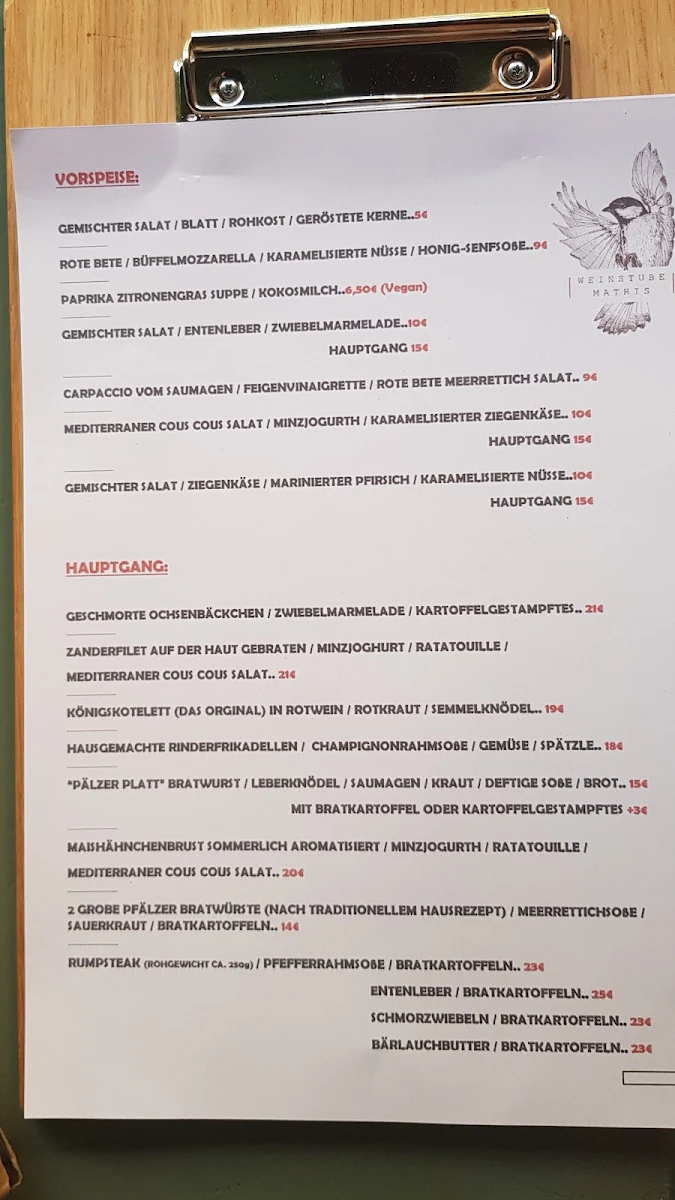 VORSPEISE:
GEMISCHTER SALAT / BLATT / ROHKOST / GERÖSTETE KERNE..5€
ROTE BETE / BÜFFELMOZZARELLA / KARAMELISIERTE NÜSSE / HONIG-SENFSOßE..9€
WEINSTUBE
MATHIS
PAPRIKA ZITRONENGRAS SUPPE / KOKOSMILCH..6,50€ (Vegan)
GEMISCHTER SALAT / ENTENLEBER / ZWIEBELMARMELADE..10€
HAUPTGANG 15€
CARPACCIO VOM SAUMAGEN / FEIGENVINAIGRETTE / ROTE BETE MEERRETTICH SALAT.. 9€
MEDITERRANER COUS COUS SALAT / MINZJOGURTH / KARAMELISIERTER ZIEGENKÄSE.. 10€
HAUPTGANG 15€
GEMISCHTER SALAT / ZIEGENKÄSE / MARINIERTER PFIRSICH / KARAMELISIERTE NÜSSE..10€
HAUPTGANG 15€
HAUPTGANG:
GESCHMORTE OCHSENBÄCKCHEN / ZWIEBELMARMELADE / KARTOFFELGESTAMPFTES.. 21€
ZANDERFILET AUF DER HAUT GEBRATEN / MINZJOGHURT / RATATOUILLE /
MEDITERRANER COUS COUS SALAT.. 21€
KÖNIGSKOTELETT (DAS ORGINAL) IN ROTWEIN / ROTKRAUT / SEMMELKNÖDEL.. 19€
HAUSGEMACHTE RINDERFRIKADELLEN / CHAMPIGNONRAHMSOßE / GEMÜSE / SPÄTZLE.. 18€
"PÄLZER PLATT" BRATWURST / LEBERKNÖDEL / SAUMAGEN / KRAUT / DEFTIGE SOßE / BROT.. 15€
MIT BRATKARTOFFEL ODER KARTOFFELGESTAMPFTES +3€
MAISHÄHNCHENBRUST SOMMERLICH AROMATISIERT / MINZJOGURTH / RATATOUILLE /
MEDITERRANER COUS COUS SALAT.. 20€
2 GROBE PFÄLZER BRATWÜRSTE (NACH TRADITIONELLEM HAUSREZEPT) / MEERRETTICHSOßE /
SAUERKRAUT / BRATKARTOFFELN.. 14€
RUMPSTEAK (ROHGEWICHT CA. 250g) / PFEFFERRAHMSOßE / BRATKARTOFFELN.. 23€
ENTENLEBER / BRATKARTOFFELN.. 25€
SCHMORZWIEBELN / BRATKARTOFFELN.. 23€
BÄRLAUCHBUTTER / BRATKARTOFFELN.. 23€